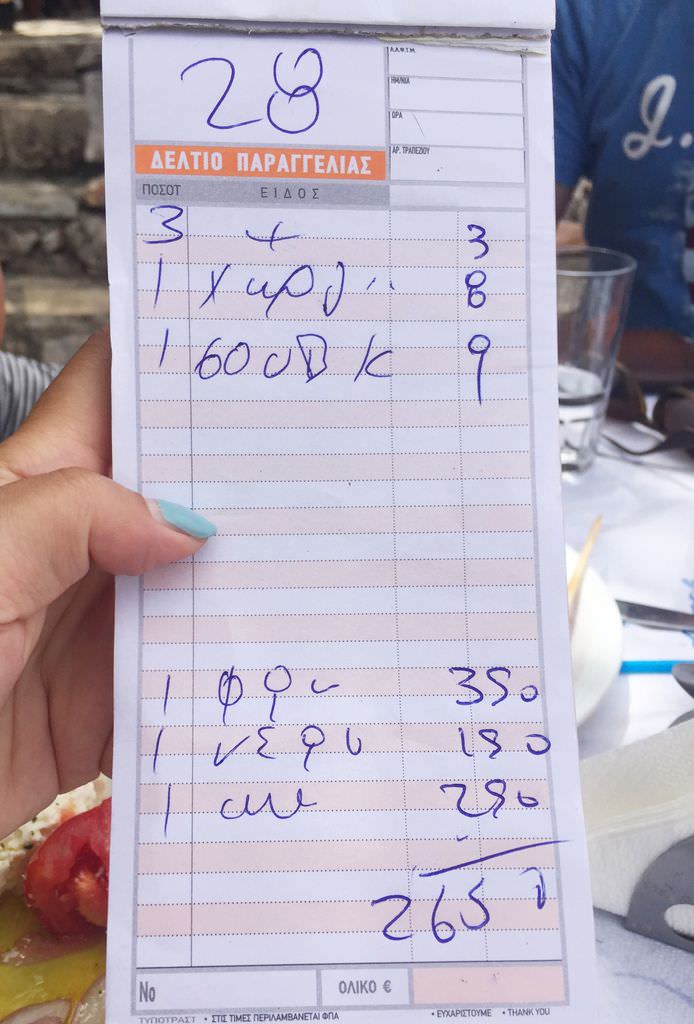 28
Α.Α.Φ.Τ.Μ.
ΗΜ/ΝΙΑ
ΩΡΑ
ΑΡ. ΤΡΑΠΕΖΙΟΥ
ΔΕΛΤΙΟ ΠΑΡΑΓΓΕΛΙΑΣ
ΠΟΣΟΤ ΕΙΔΟΣ
3 + 3
1 8
1 9
1 350
1 νερο 150
1 250
265
Νο ΟΛΙΚΟ €
ΤΥΠΟΤΡΑΣΤ • ΣΤΙΣ ΤΙΜΕΣ ΠΕΡΙΛΑΜΒΑΝΕΤΑΙ ΦΠΑ • ΕΥΧΑΡΙΣΤΟΥΜΕ • THANK YOU